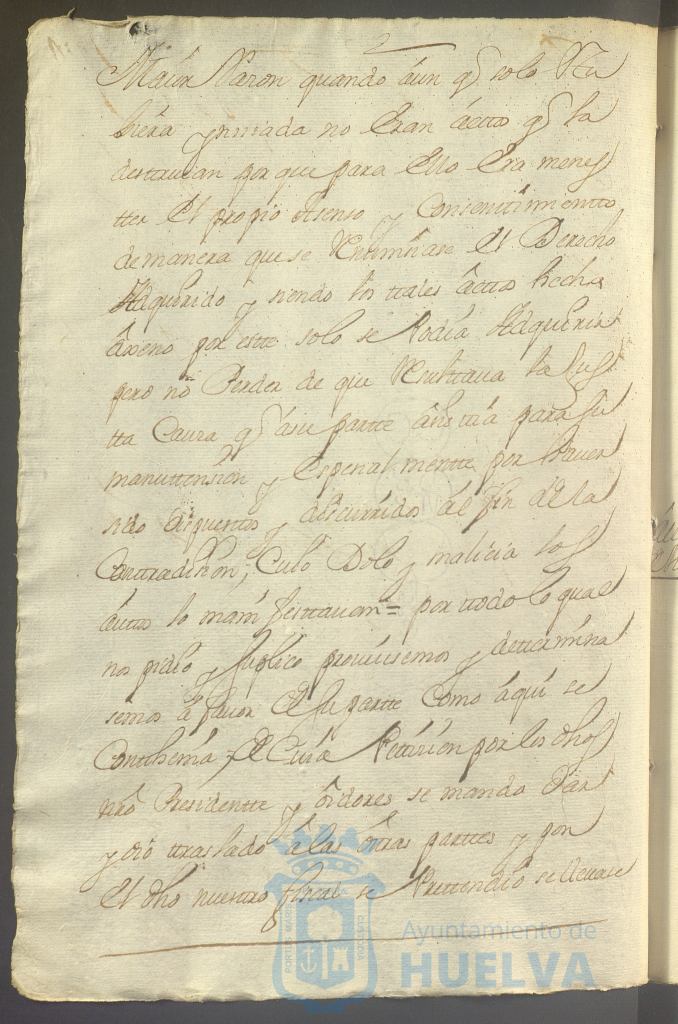 Maior Razon quando aun q solo Hu
biera jnmiada no Eran actos q la
destruian por que para Ello Era menes
tter El propio asenso y Consentimientto
de manera que se Extiminase El Derecho
Adquerido y siendo los ttales actos hechos
axeno por estte solo se Podia Adquirir
pero no Perder de que Resulttava la Jus
tta Causa q asu partte asistia para su
manuttension y Espezialmentte por haver
sido dispuestos y discurridos al fin de la
Contradizion, Cuio Dolo y malicia los
auttos lo manifesttavan = por ttodo lo qual
nos pidio y suplico proveiesemos y dettermina
semos a favor de su partte Como aqui se
Conthenia, y de Cuia Petizion por los dhos
nro Presidentte y oidores se mando Dar
y dio ttraslado a las ottras parttes y por
El dho nuestro fiscal se Prettendio se llevase
Ayuntamiento de
HUELVA